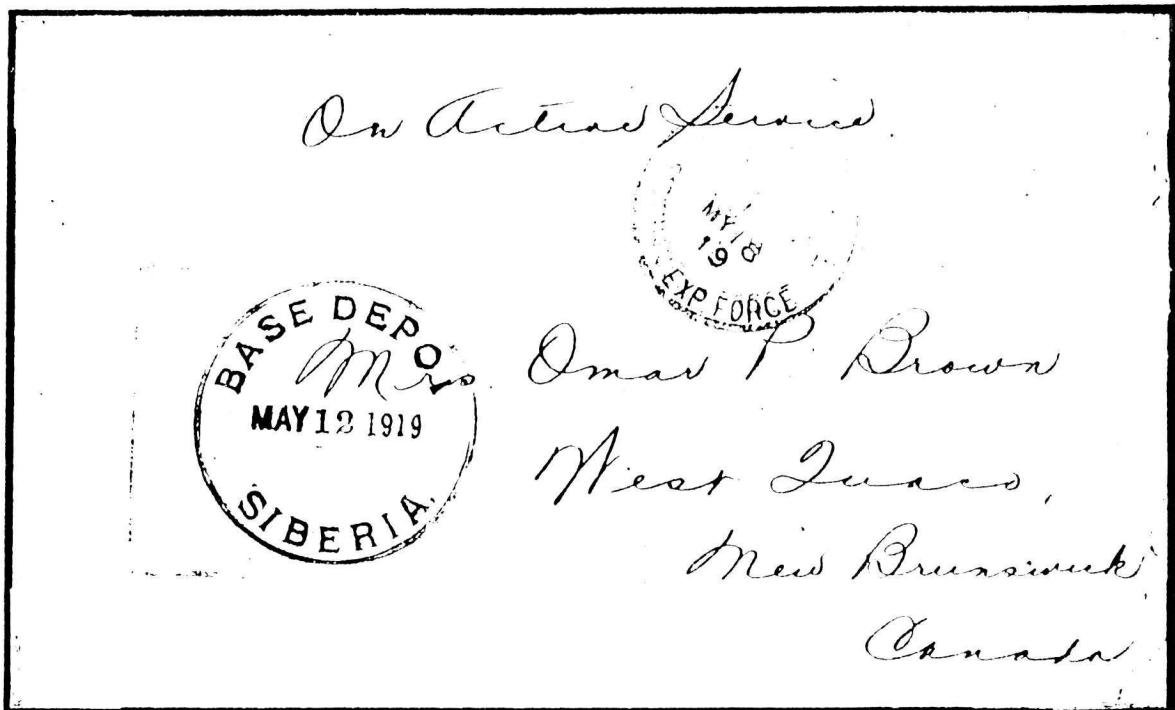 On Active Service
MY 18
19
EXP. FORCE
BASE DEPOT
MAY 12 1919
SIBERIA.
Mrs. Omar P. Brown
West Quaco,
New Brunswick
Canada